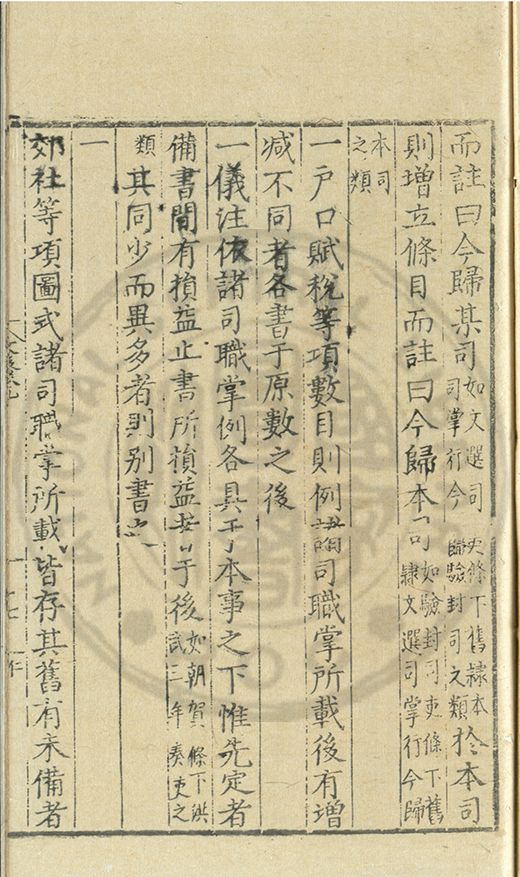 而註曰今歸某司如文選司吏條下舊隸本司掌行今歸驗封司之類於本司
則增立條目而註曰今歸本司如驗封司吏條下舊隸文選司掌行今歸
本司之類
一戶口賦稅等項數目則例諸司職掌所載後有增
减不同者各書于原數之後
一儀注依諸司職掌例各具于本事之下惟先定者
備書間有損益止書所損益者于後如朝賀條下洪武三年奏吏之
類其同少而異多者則別書之
一
郊社等項圖式諸司職掌所載皆存其舊有未備者